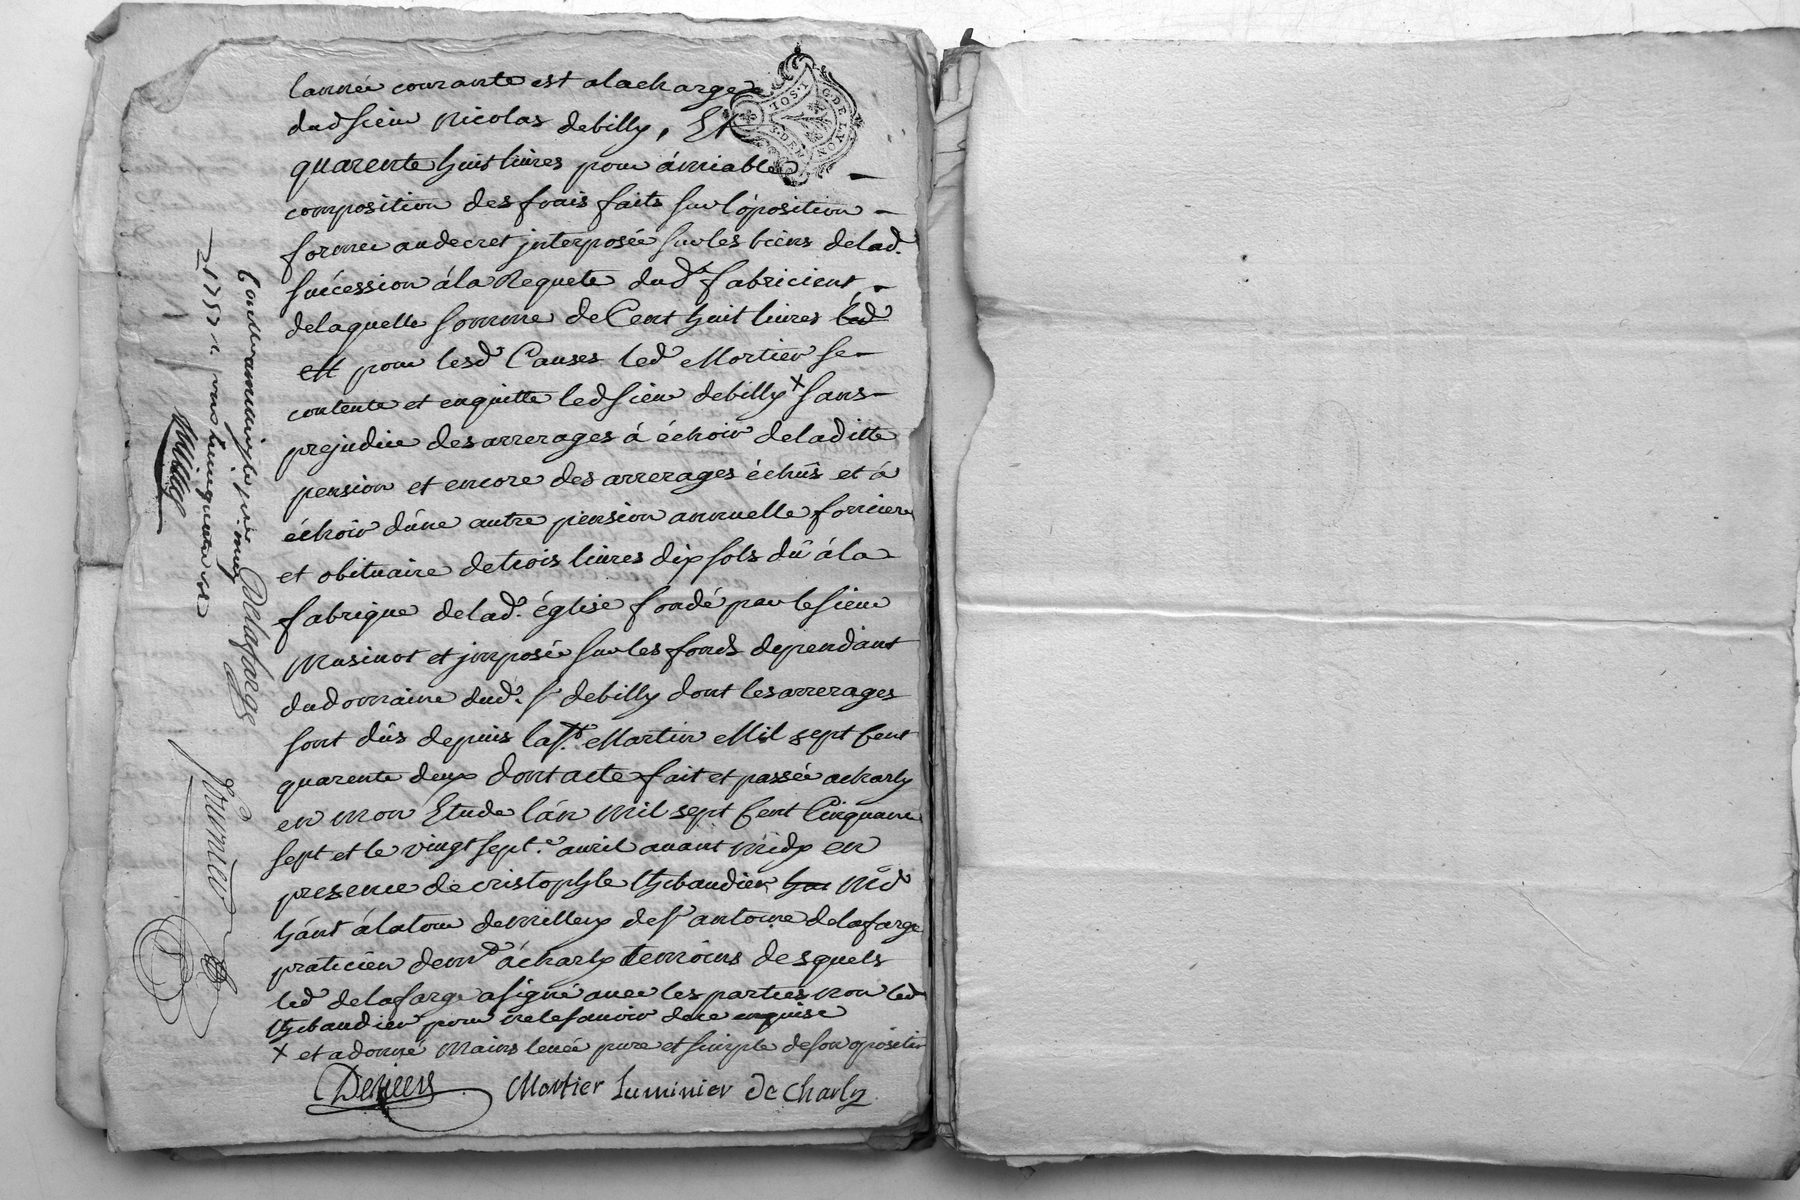 lannée courante est alacharge
dudsieur Nicolas debilly, Et
quarente huit livres pour ámiable
composition des frais faits sur lóposition
formée audecret jnterposée sur les biens delad.
succession álaRequete dud. fabricient
delaquelle somme de Cent huit livres led
et pour lesd Causes led Mortier se
contente et enquitte ledsieur debilly x sans
prejudice des arrerages á échoir deladitte
pension et encore des arrerages échûs et á
échoir dúne autre pension annuelle fonciere
et obituaire detrois livres dix sols dû ála
fabrique delad. église fondé par lesieur
Musinot et jmposée sur les fonds dependant
dudomaine dud. sr debilly dont lesarrerages
sont dûs depuis laSt. Martin Mil sept Cent
quarente deux dontacte fait et passée acharly
en mon Etude lán mil sept Cent Cinquante
sept et le vingtsept.e avril avant midy en
presence de cristophle thibaudier md
hánt álatour demillery de sr antoine delafarge
praticien demt ácharly temoins desquels
led delafarge asigné avec les parties non led
thibaudier pour nelesavoir dece enquise
x et adonné mains levée pure et simple deson opositin
Mortier Luminier de Charly
Delafarge
G. DE LYON